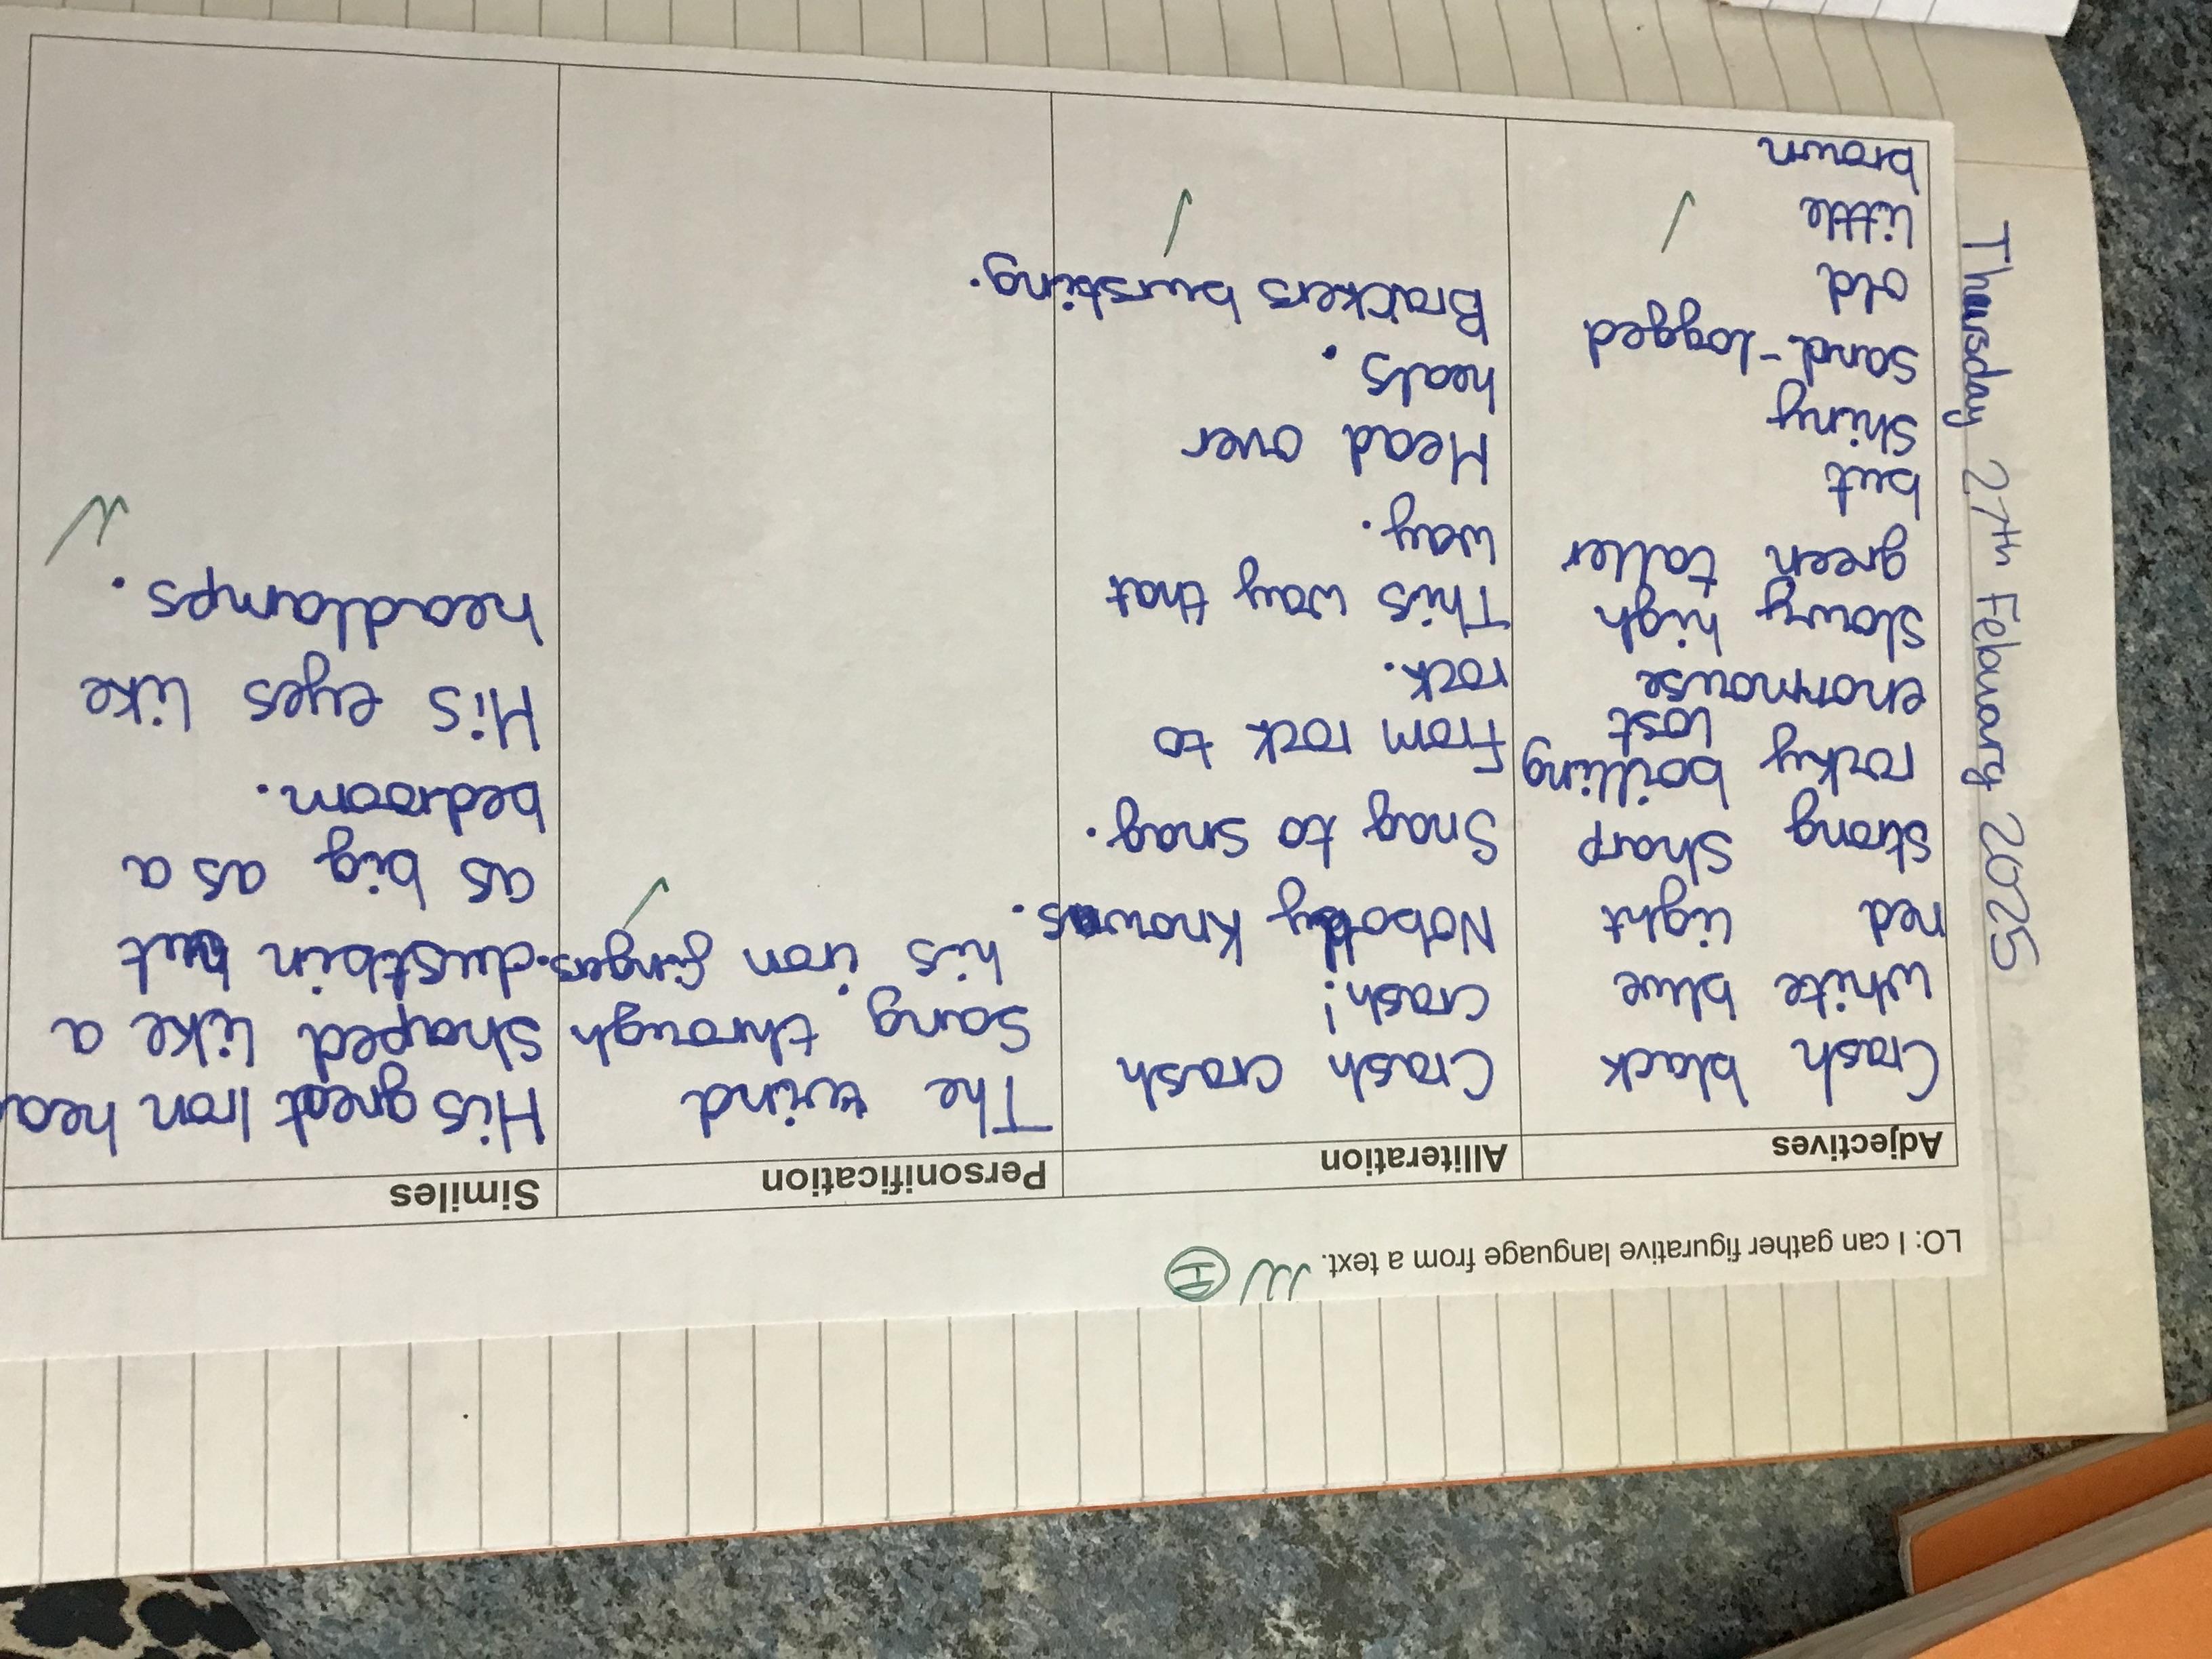 Thursday 27th Febuary 2025
LO: I can gather figurative language from a text.
Adjectives
Crash black
white blue
red light
strong sharp
rocky boilling
lost
enormouse
slowy high
green taller
but
shiny
sand-logged
old
little
brown
Alliteration
Crash crash
crash!
Nobody knows.
Snag to snag.
From rock to
rock.
This way that
way.
Head over
heals.
Brackers bursting.
Personification
The wind
Sang through
his iron fingers.
Similes
His great Iron hea
shaped like a
dustbin but
as big as a
bedroom.
His eyes like
headlamps.